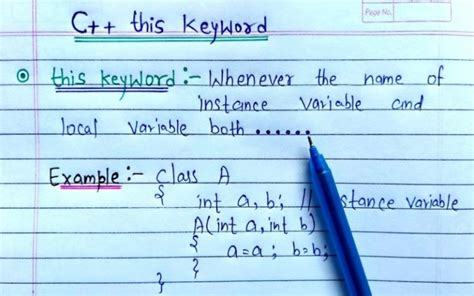 Page No.
C++ this keyword
this keyword :- Whenever the name of
instance variable and
local variable both ......
Example :- class A
{
int a, b; // stance variable
A(int a, int b)
{
a=a ; b=b;
}
}